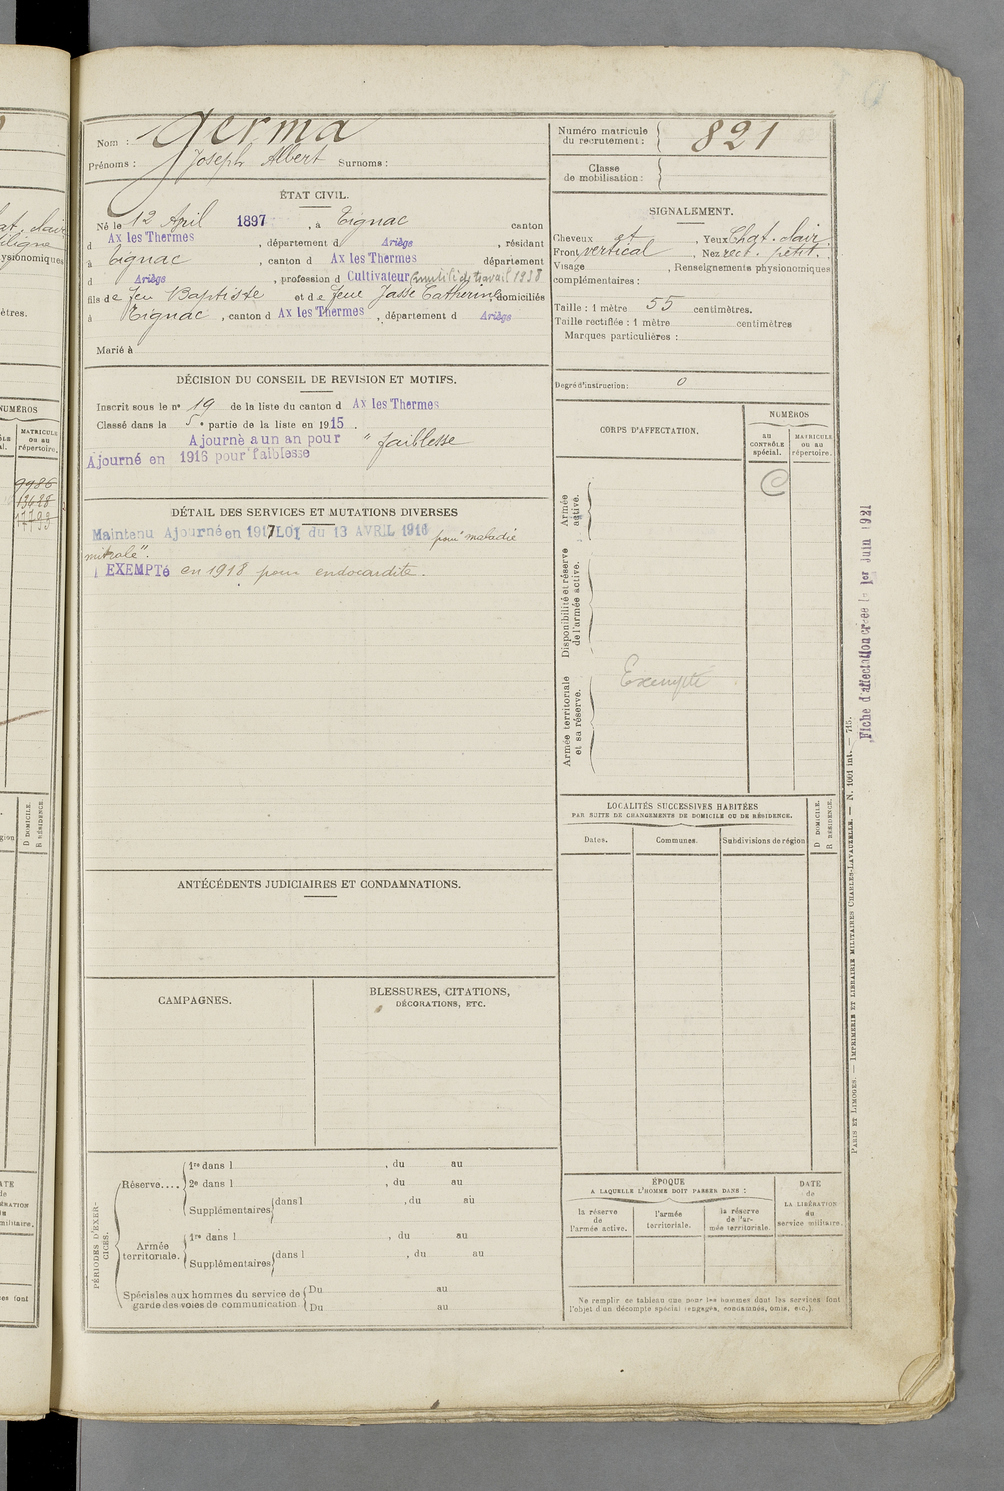 Nom : Germa
Prénoms : Joseph Albert Surnoms :
Numéro matricule du recrutement : 821
Classe de mobilisation :
ÉTAT CIVIL.
Né le 12 April 1897, à Tignac canton
d Ax les Thermes, département d Ariègs, résidant
à Tignac, canton d Ax les Thermes département
d Ariègs, profession d Cultivateur
fils de feu Baptiste et de feue Jasse Catherine, domiciliés
à Tignac, canton d Ax les Thermes, département d Ariègs
Marié à
SIGNALEMENT.
Cheveux et, Yeux Chat. clair.
Front vertical, Nez rect. petit.
Visage, Renseignements physionomiques
complémentaires :
Taille : 1 mètre 55 centimètres.
Taille rectifiée : 1 mètre centimètres
Marques particulières :
Degré d'instruction : 0
DÉCISION DU CONSEIL DE REVISION ET MOTIFS.
Inscrit sous le nº 19 de la liste du canton d Ax les Thermes
Classé dans la 5e partie de la liste en 1915.
Ajourné a un an pour " faiblesse
Ajourné en 1916 pour faiblesse
DÉTAIL DES SERVICES ET MUTATIONS DIVERSES
Maintenu Ajourné en 1917 LOI du 13 AVRIL 1916 pour "maladie
mitrale".
EXEMPTé en 1918 pour endocardite.
CORPS D'AFFECTATION.
NUMÉROS
au CONTRÔLE spécial.
MATRICULE ou au répertoire.
C
Armée active.
Disponibilité et réserve de l'armée active.
Armée territoriale et sa réserve.
Exempté
Fiche d'affectation créée le 1er Juin 1921
LOCALITÉS SUCCESSIVES HABITÉES
PAR SUITE DE CHANGEMENTS DE DOMICILE OU DE RÉSIDENCE.
Dates.
Communes.
Subdivisions de région
D DOMICILE.
R RÉSIDENCE.
ANTÉCÉDENTS JUDICIAIRES ET CONDAMNATIONS.
CAMPAGNES.
BLESSURES, CITATIONS,
DÉCORATIONS, ETC.
PÉRIODES D'EXERCICES.
Réserve....
1re dans l , du au
2e dans l , du au
Supplémentaires dans l , du au
Armée territoriale.
1re dans l , du au
Supplémentaires dans l , du au
Spéciales aux hommes du service de garde des voies de communication
Du au
Du au
ÉPOQUE
A LAQUELLE L'HOMME DOIT PASSER DANS :
la réserve de l'armée active.
l'armée territoriale.
la réserve de l'armée territoriale.
DATE de LA LIBÉRATION du service militaire.
Ne remplir ce tableau que pour les hommes dont les services font
l'objet d'un décompte spécial (engagés, condamnés, omis, etc.)
PARIS ET LIMOGES. — IMPRIMERIE ET LIBRAIRIE MILITAIRES CHARLES-LAVAUZELLE. — N. 1001 int. — 715.
NUMÉROS
MATRICULE
ou au
répertoire.
9986
D DOMICILE.
R RÉSIDENCE.